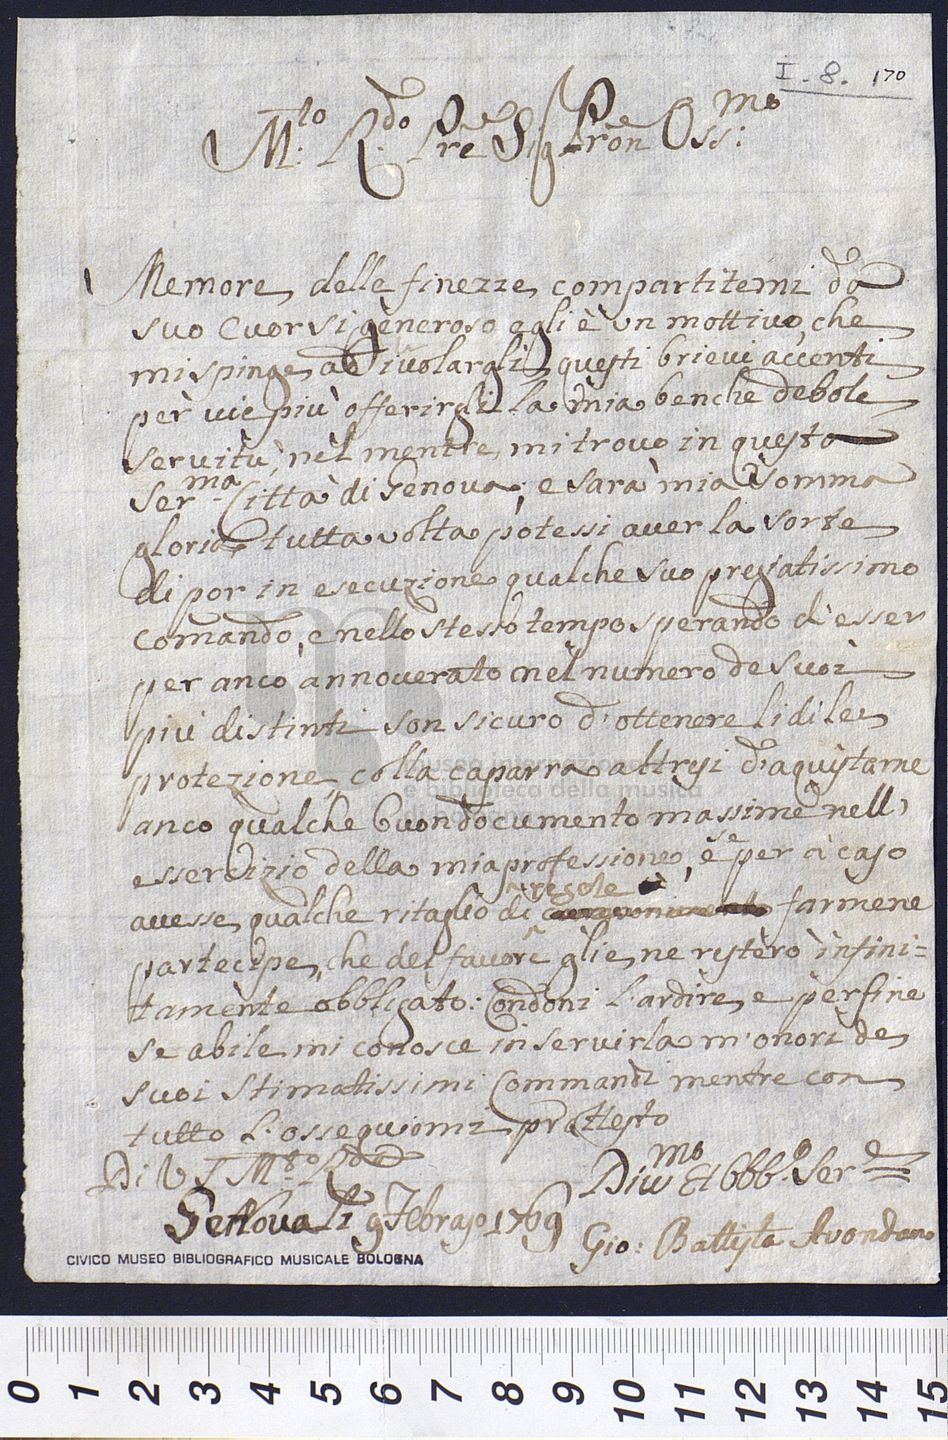 I. 8. 170
M.to R.do Pre Sig Pron Oss:mo
Memore delle finezze compartitemi da
suo cuor si generoso egli è un mottivo, che
mi spinge ad ivolargli questi brievi accenti
per vie più offerirgli la mia benche debole
servitù, nel mentre mi trovo in questa
Ser.ma Città di Genova; e sarà mia somma
gloria tutta volta potessi aver la sorte
di por in esecuzione qualche suo pregiatissimo
comando, e nello stesso tempo sperando d'esser
per anco annoverato nel numero de suoi
più distinti son sicuro d'ottenere li di lei
protezione, colla caparra altresi d'aquistarne
anco qualche buon documento massime nell'
essercizio della mia professione, e se per à caso
avesse qualche ritaglio di regole farmene
partecipe, che del favore glie ne resterò infini=
tamente obbligato: Condoni l'ardire, e per fine
se abile mi conosce in servirla m'onori de
suoi stimatissimi Commandi mentre con
tutto l'ossequio mi prottesto
Di V S M.to R.da
Genova li 9 Febrajo 1769
Div.mo et Obb.o Ser.e
Gio: Battista Avondano
CIVICO MUSEO BIBLIOGRAFICO MUSICALE BOLOGNA
museo internazionale
e biblioteca della musica
0 1 2 3 4 5 6 7 8 9 10 11 12 13 14 15